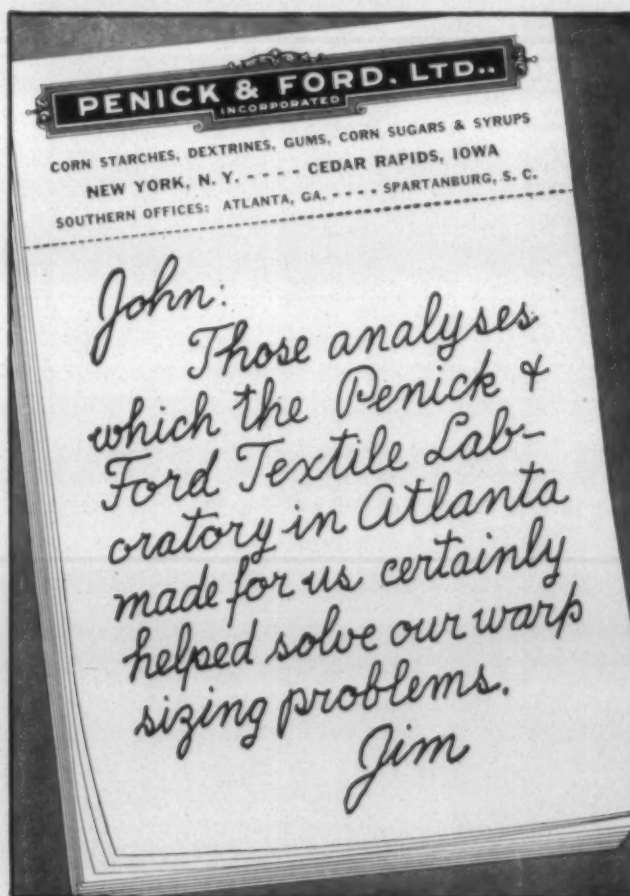 PENICK & FORD. LTD..
INCORPORATED
CORN STARCHES, DEXTRINES, GUMS, CORN SUGARS & SYRUPS
NEW YORK, N. Y. - - - - CEDAR RAPIDS, IOWA
SOUTHERN OFFICES: ATLANTA, GA. - - - - SPARTANBURG, S. C.
John:
Those analyses
which the Penick &
Ford Textile Lab-
oratory in Atlanta
made for us certainly
helped solve our warp
sizing problems.
Jim